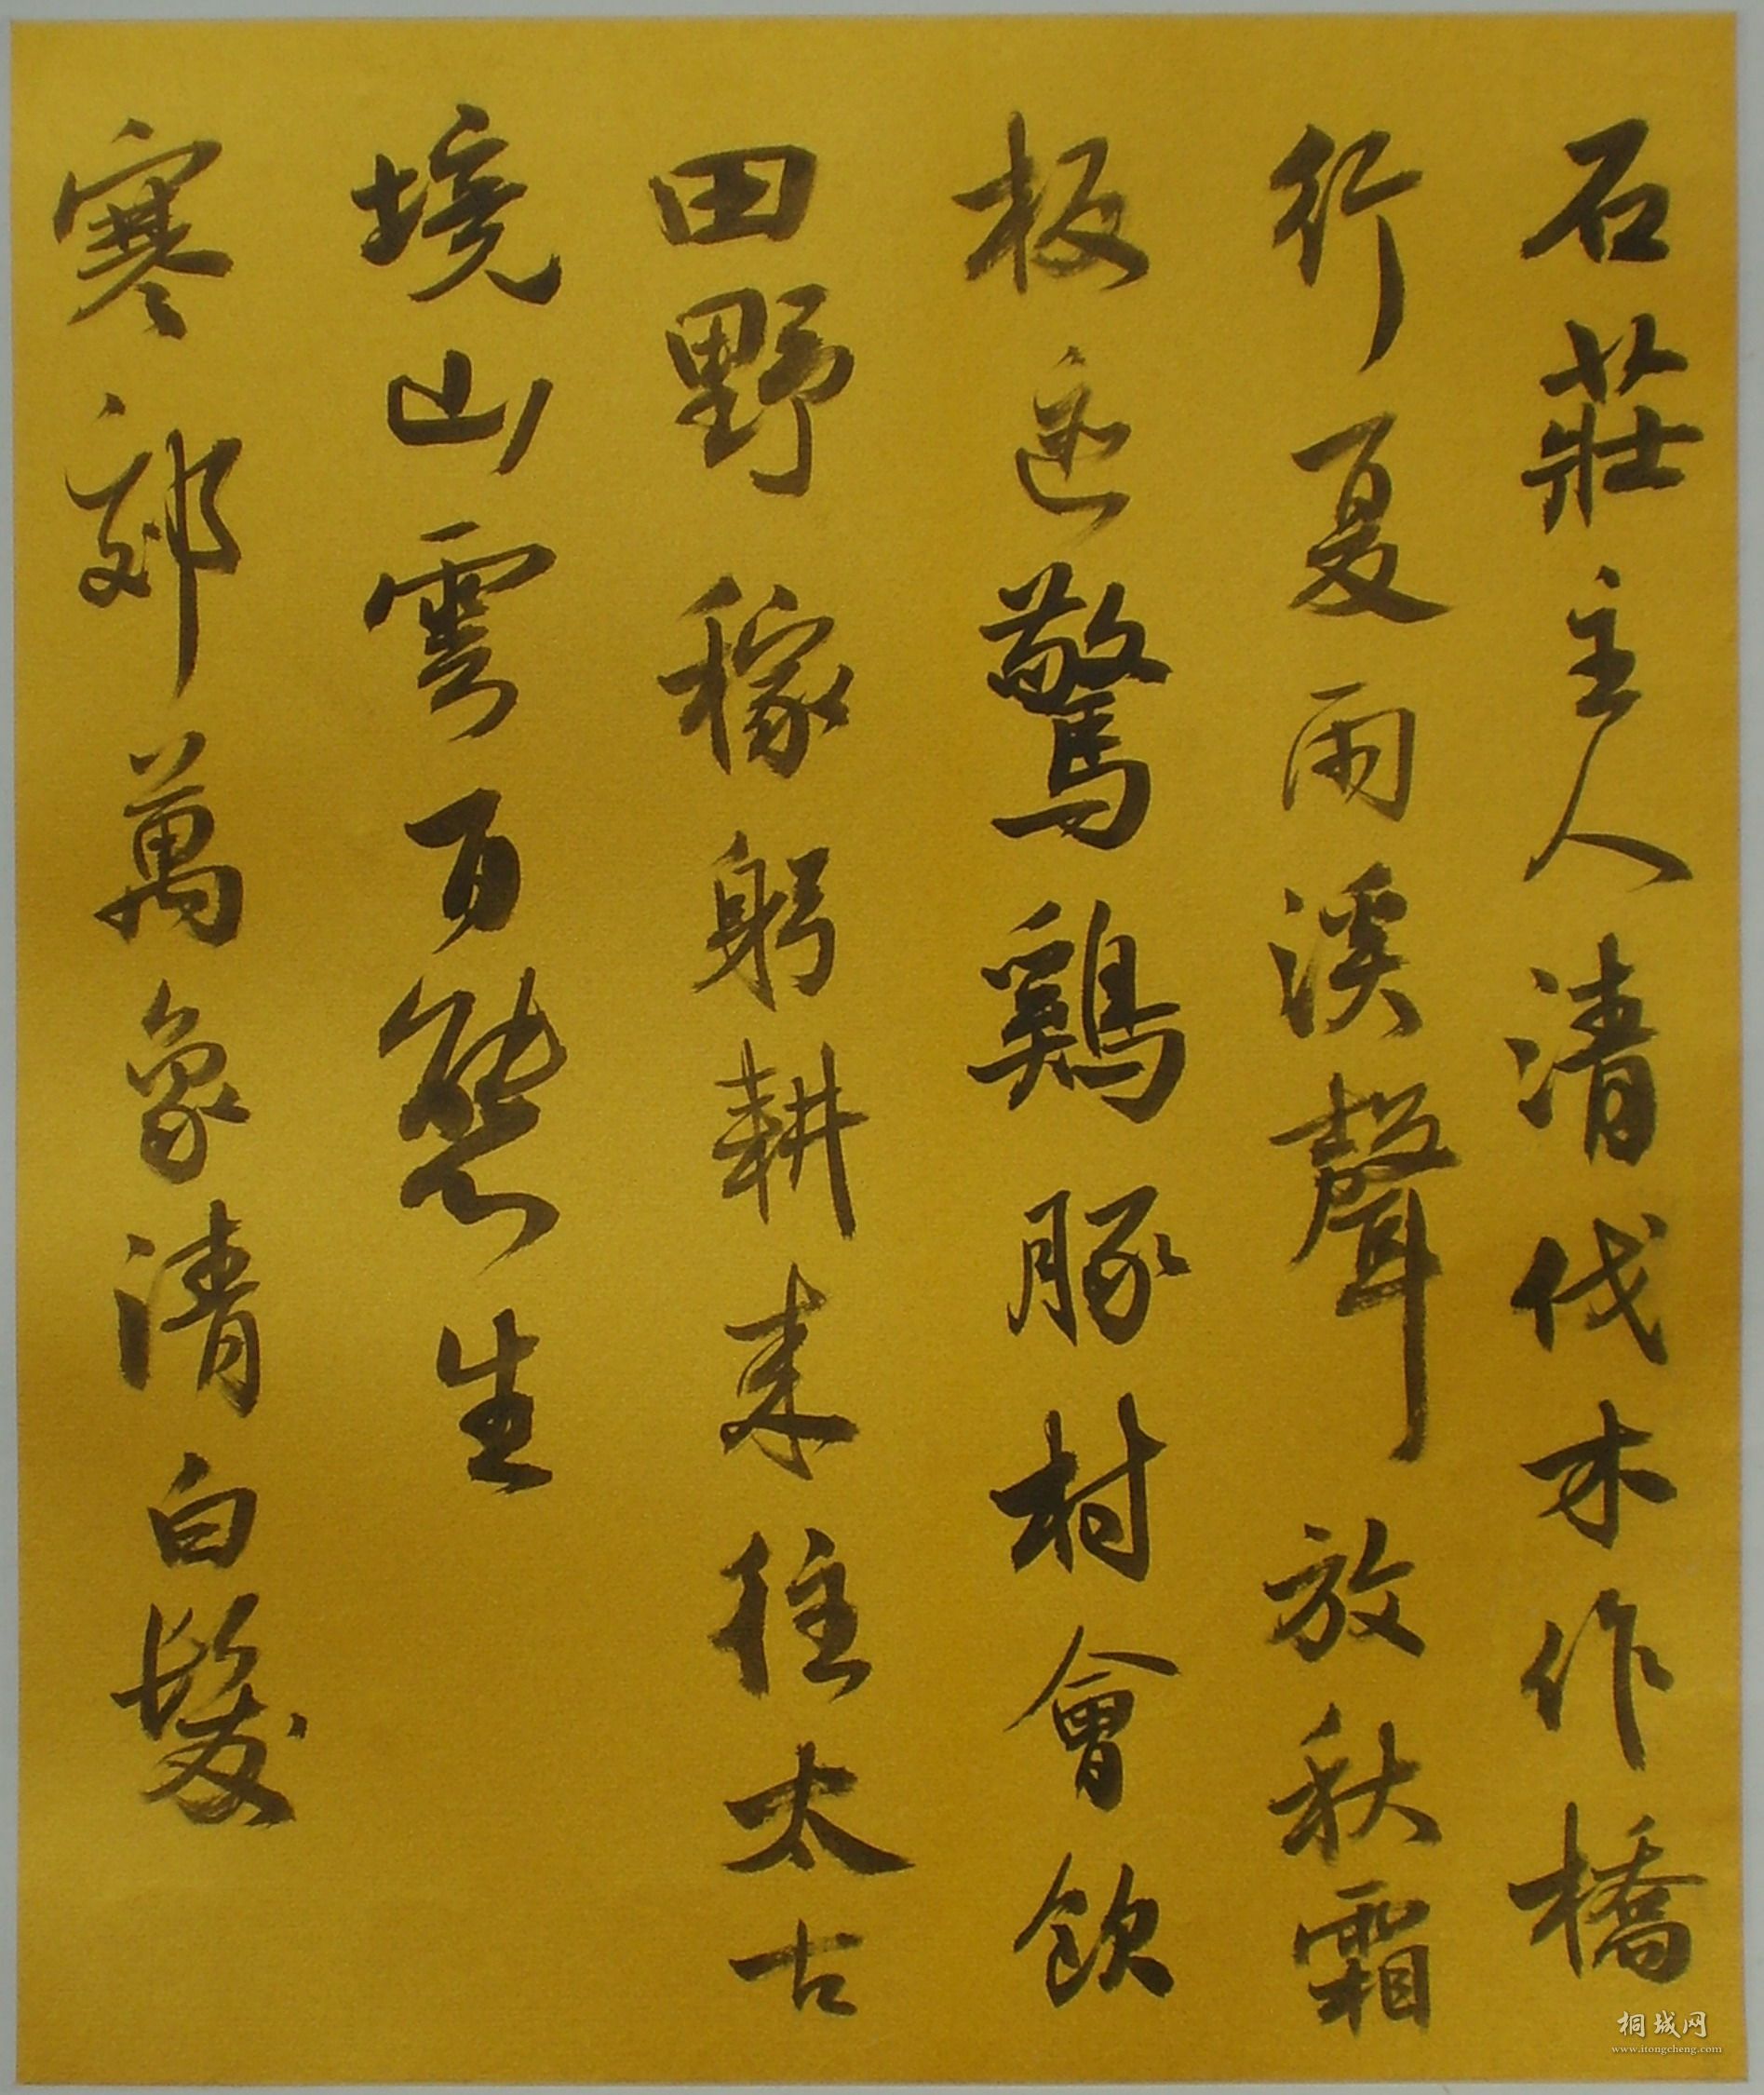 石莊主人清伐木作橋
行夏雨溪聲放秋霜
板迹驚鷄豚村會飲
田野稼躬耕来往太古
境山雲百態生
寒郊萬象清白髮
桐城网
www.itongcheng.com